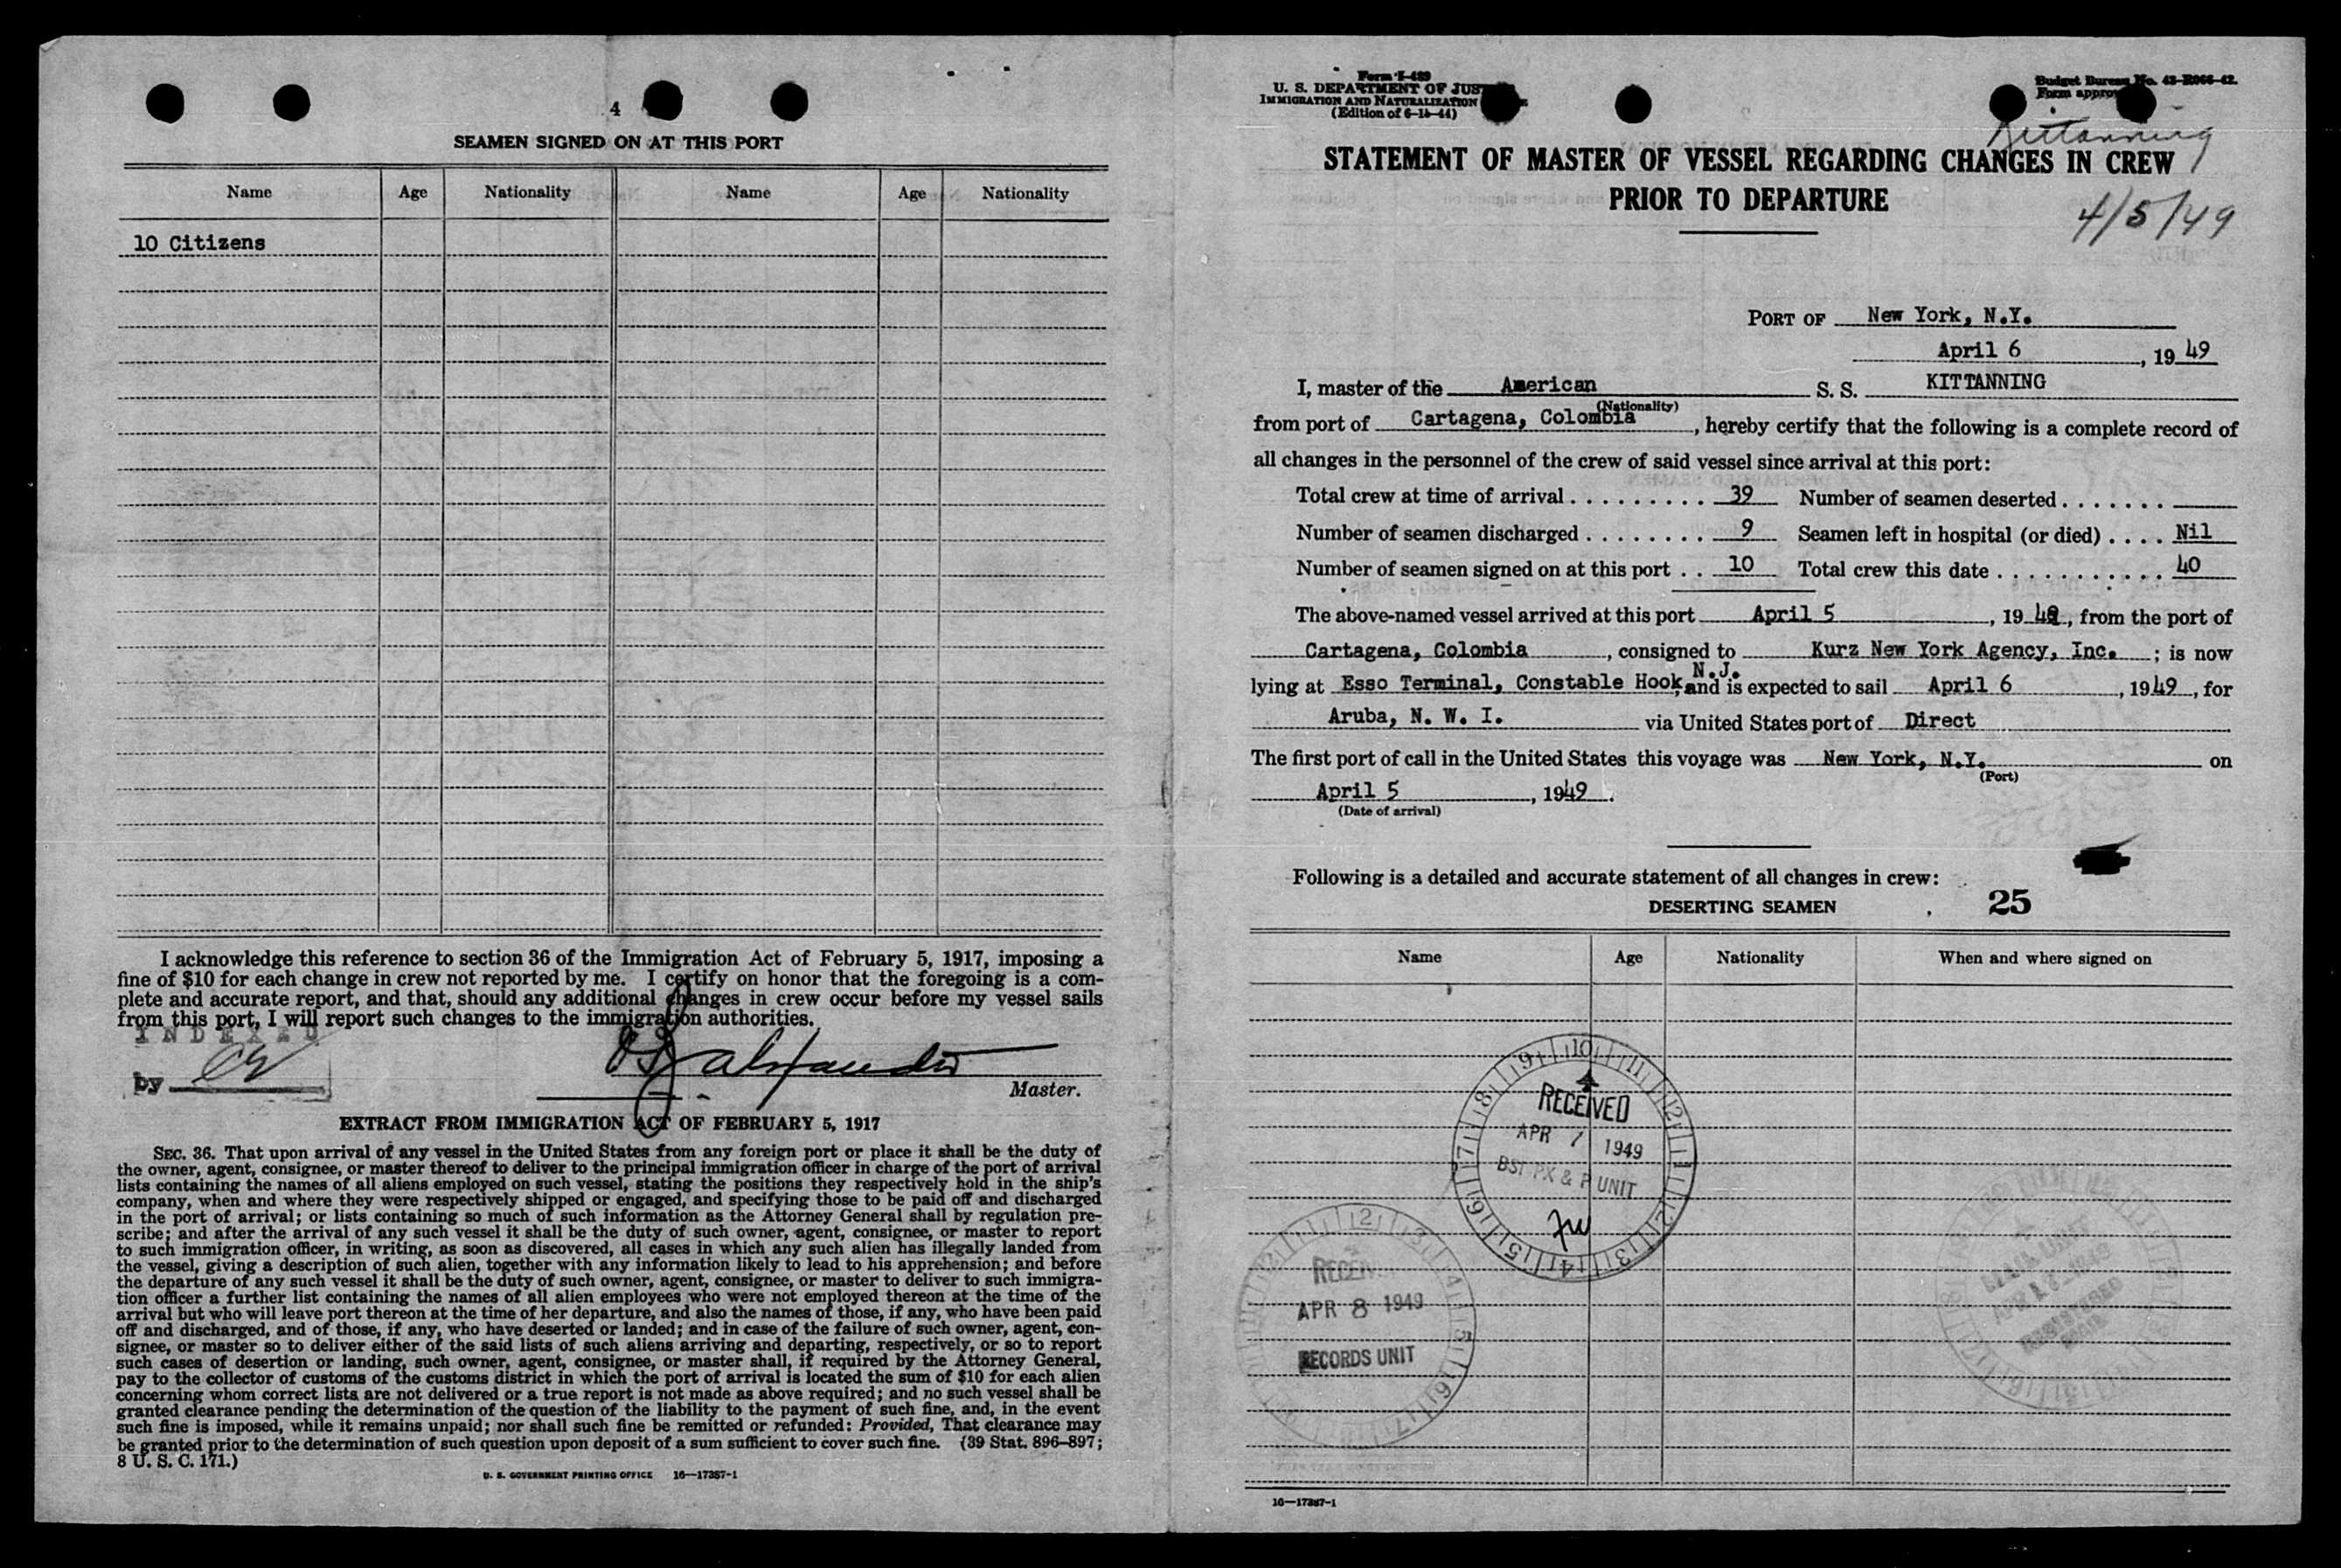 4
SEAMEN SIGNED ON AT THIS PORT
Name Age Nationality Name Age Nationality
10 Citizens
I acknowledge this reference to section 36 of the Immigration Act of February 5, 1917, imposing a
fine of $10 for each change in crew not reported by me. I certify on honor that the foregoing is a com-
plete and accurate report, and that, should any additional changes in crew occur before my vessel sails
from this port, I will report such changes to the immigration authorities.
INDEXED
by
Master.
EXTRACT FROM IMMIGRATION ACT OF FEBRUARY 5, 1917
SEC. 36. That upon arrival of any vessel in the United States from any foreign port or place it shall be the duty of
the owner, agent, consignee, or master thereof to deliver to the principal immigration officer in charge of the port of arrival
lists containing the names of all aliens employed on such vessel, stating the positions they respectively hold in the ship's
company, when and where they were respectively shipped or engaged, and specifying those to be paid off and discharged
in the port of arrival; or lists containing so much of such information as the Attorney General shall by regulation pre-
scribe; and after the arrival of any such vessel it shall be the duty of such owner, agent, consignee, or master to report
to such immigration officer, in writing, as soon as discovered, all cases in which any such alien has illegally landed from
the vessel, giving a description of such alien, together with any information likely to lead to his apprehension; and before
the departure of any such vessel it shall be the duty of such owner, agent, consignee, or master to deliver to such immigra-
tion officer a further list containing the names of all alien employees who were not employed thereon at the time of the
arrival but who will leave port thereon at the time of her departure, and also the names of those, if any, who have been paid
off and discharged, and of those, if any, who have deserted or landed; and in case of the failure of such owner, agent, con-
signee, or master so to deliver either of the said lists of such aliens arriving and departing, respectively, or so to report
such cases of desertion or landing, such owner, agent, consignee, or master shall, if required by the Attorney General,
pay to the collector of customs of the customs district in which the port of arrival is located the sum of $10 for each alien
concerning whom correct lists are not delivered or a true report is not made as above required; and no such vessel shall be
granted clearance pending the determination of the question of the liability to the payment of such fine, and, in the event
such fine is imposed, while it remains unpaid; nor shall such fine be remitted or refunded: Provided, That clearance may
be granted prior to the determination of such question upon deposit of a sum sufficient to cover such fine. (39 Stat. 896–897;
8 U. S. C. 171.)
U. S. GOVERNMENT PRINTING OFFICE 16—17387-1
Form I-489
U. S. DEPARTMENT OF JUS
IMMIGRATION AND NATURALIZATION
(Edition of 6-15-44)
Budget Bureau No. 43-R066-42.
Form approv
Kittanning
STATEMENT OF MASTER OF VESSEL REGARDING CHANGES IN CREW
PRIOR TO DEPARTURE
4/5/49
PORT OF New York, N.Y.
April 6, 1949
I, master of the American S. S. KITTANNING
(Nationality)
from port of Cartagena, Colombia, hereby certify that the following is a complete record of
all changes in the personnel of the crew of said vessel since arrival at this port:
Total crew at time of arrival . . . . . . . . . 39 Number of seamen deserted . . . . . . .
Number of seamen discharged . . . . . . . . 9 Seamen left in hospital (or died) . . . . Nil
Number of seamen signed on at this port . . 10 Total crew this date . . . . . . . . . . . . 40
The above-named vessel arrived at this port April 5, 1949, from the port of
Cartagena, Colombia, consigned to Kurz New York Agency, Inc. ; is now
lying at Esso Terminal, Constable Hook, N.J. and is expected to sail April 6, 1949, for
Aruba, N. W. I. via United States port of Direct
The first port of call in the United States this voyage was New York, N.Y. on
(Port)
April 5, 1949.
(Date of arrival)
Following is a detailed and accurate statement of all changes in crew:
DESERTING SEAMEN 25
Name Age Nationality When and where signed on
9 10 11 12 1 2 13 14 15 16 17 8
RECEIVED
APR 7 1949
UNIT
APR 8 1949
RECORDS UNIT
16—17387-1